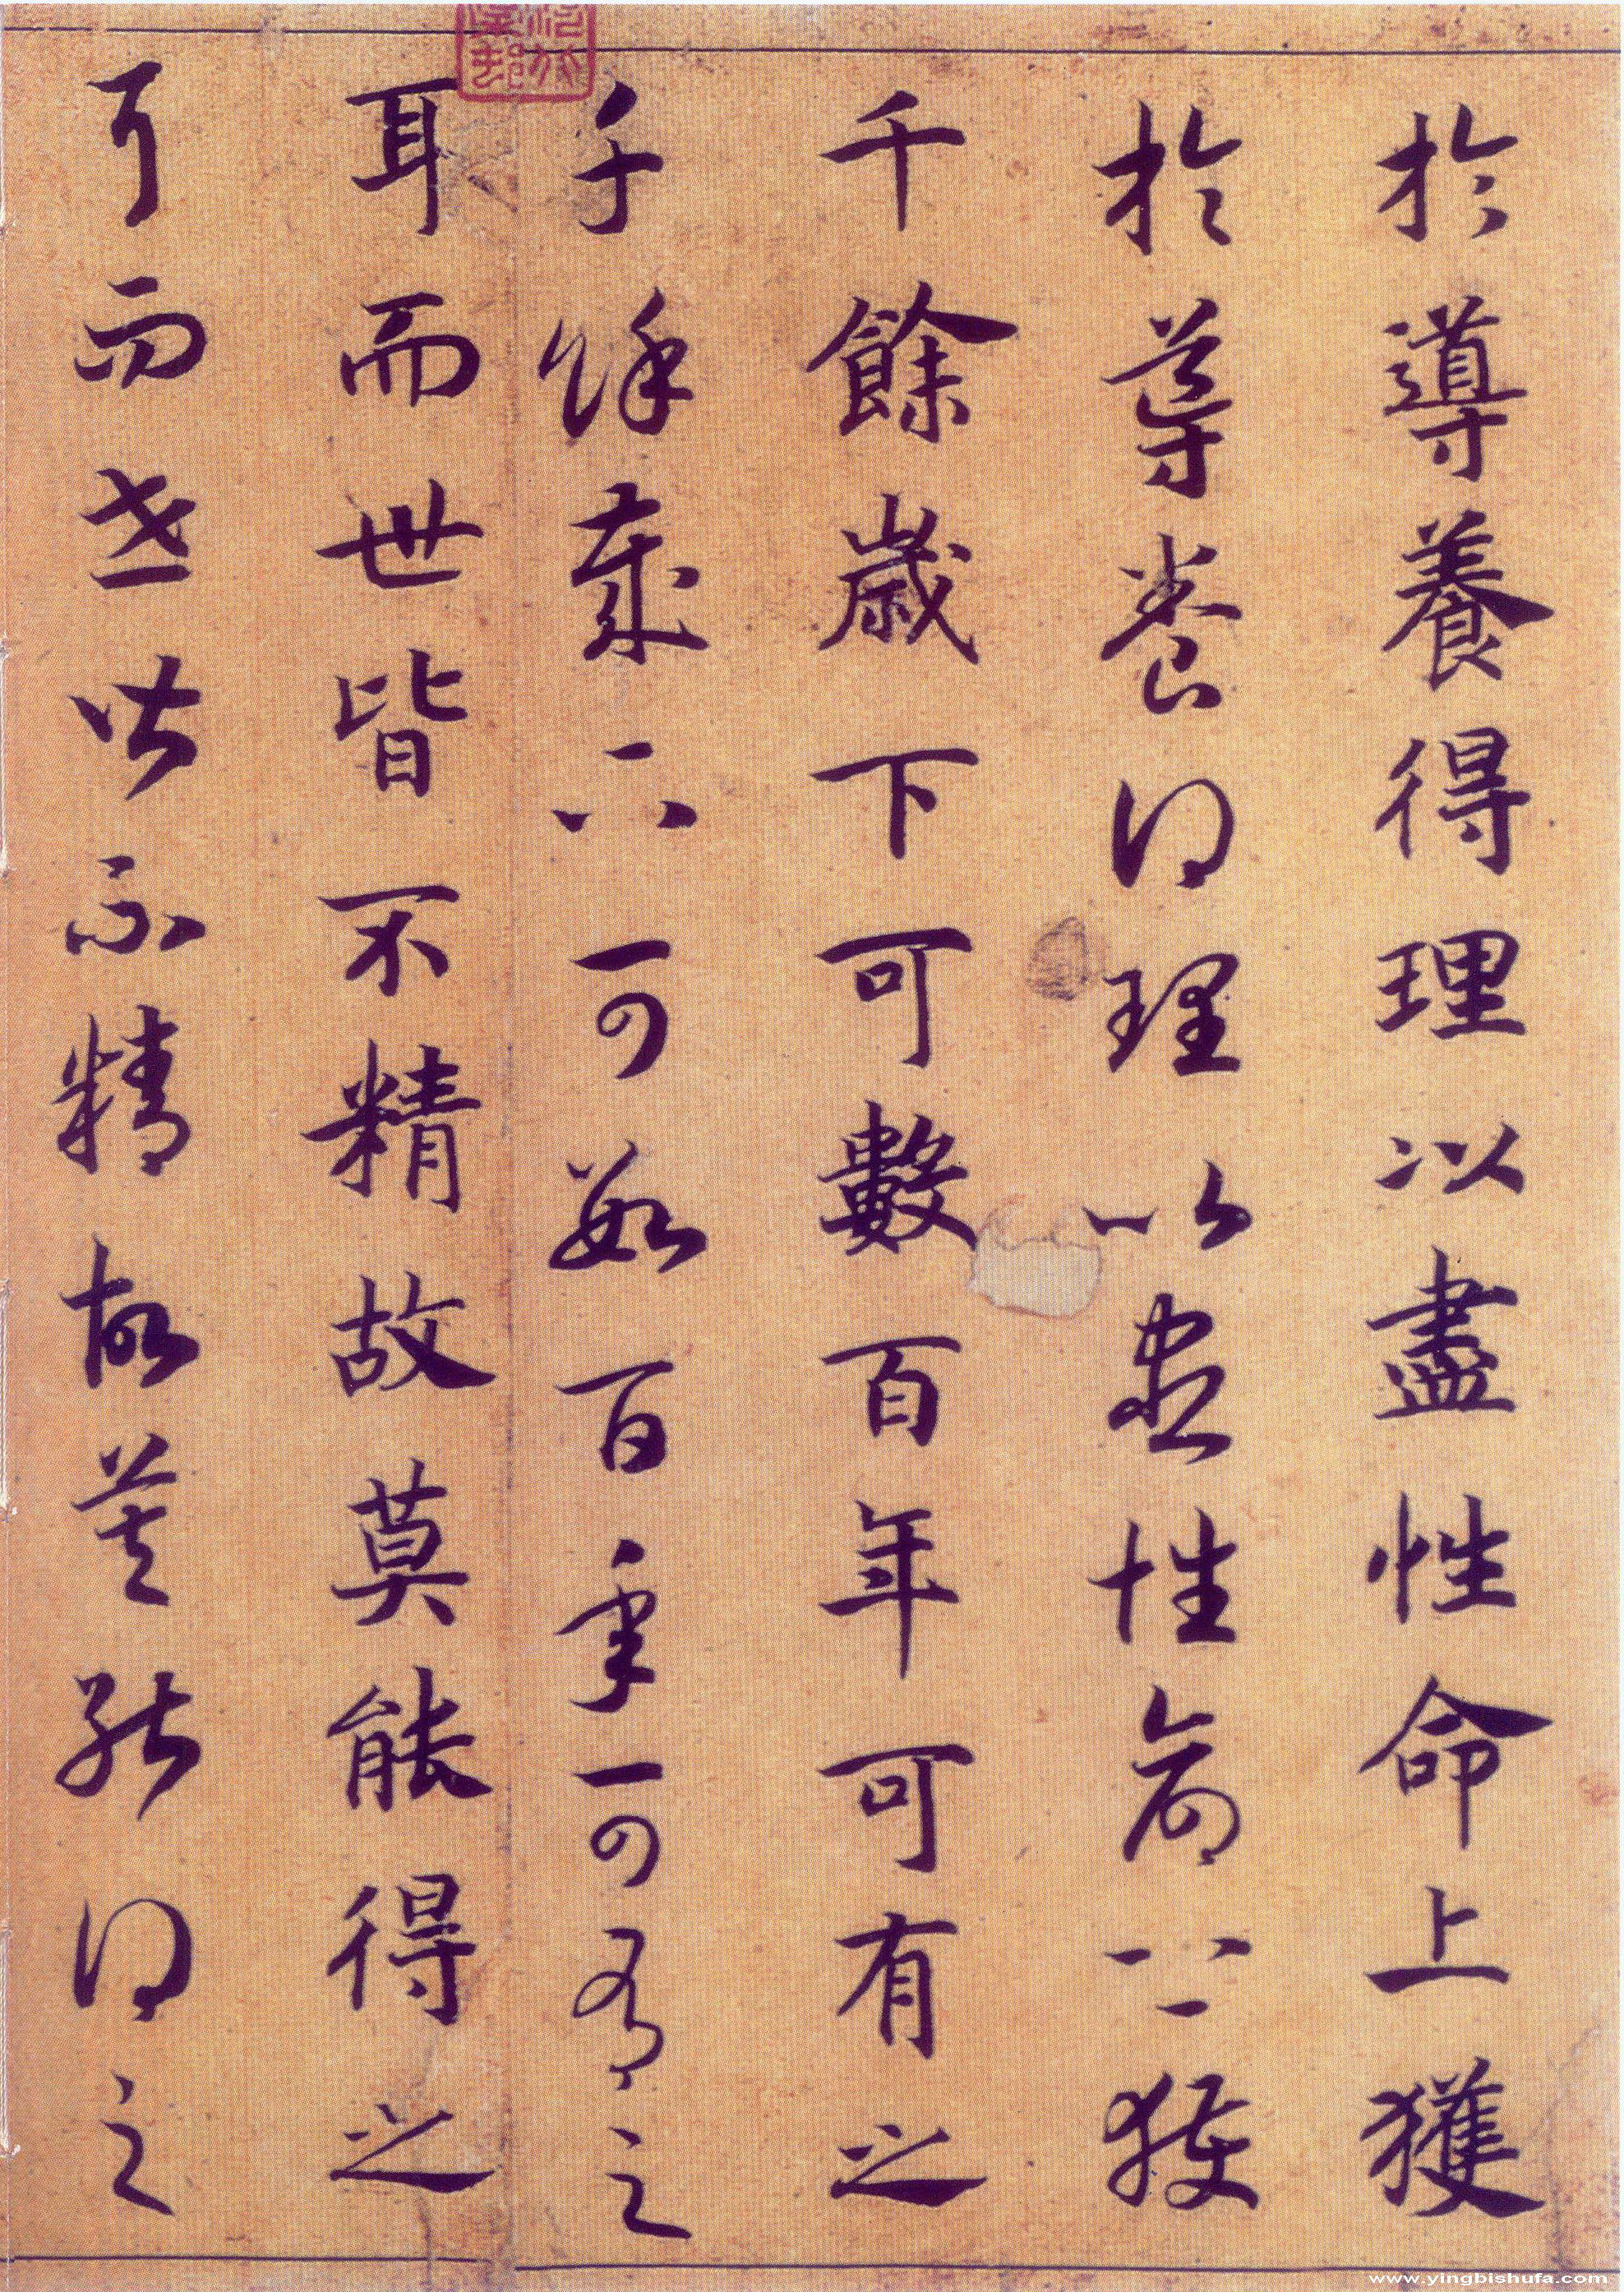 於導養得理以盡性命上獲
於導養得理以盡性命上獲
千餘歲下可數百年可有之
千餘歲下可數百年可有之
耳而世皆不精故莫能得之
耳而世皆不精故莫能得之
www.yingbishufa.com